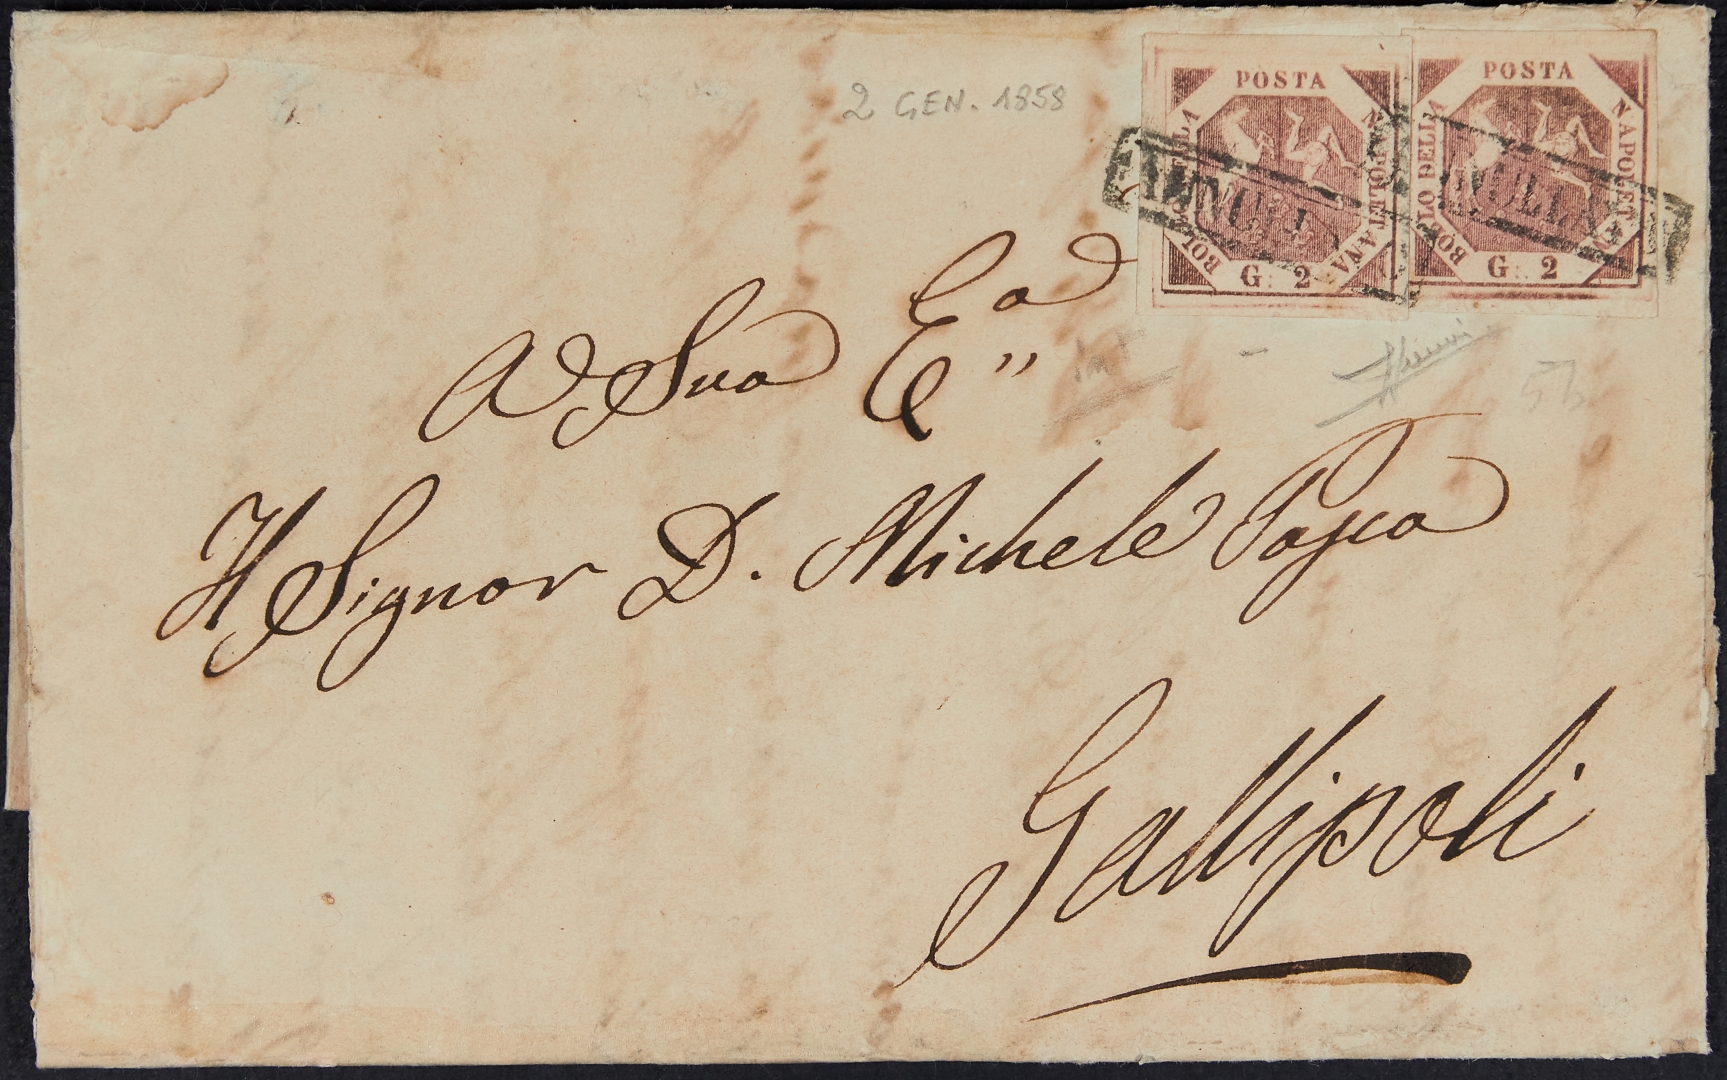 2 GEN. 1858
POSTA
NAPOLETANA
BOLLO DELLA
G. 2
POSTA
NAPOLETANA
BOLLO DELLA
G. 2
ANNULLATO
ANNULLATO
A Sua Ecc.a
Il Signor D. Michele Pasca
Gallipoli